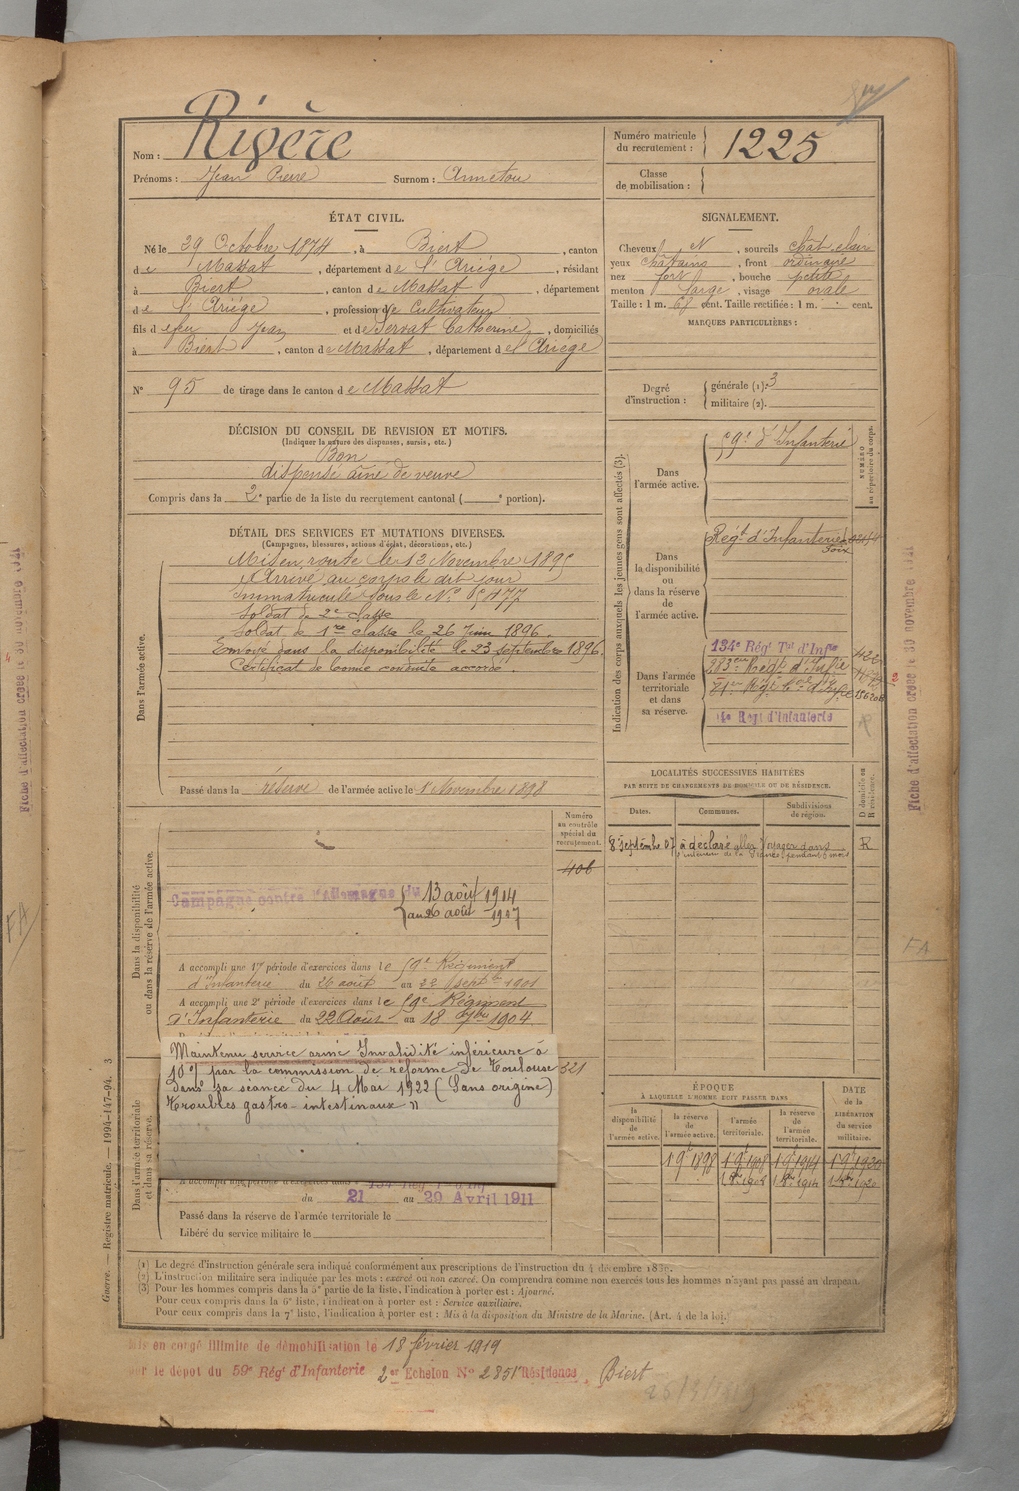 Nom : Rigère
Prénoms : Jean Pierre Surnom : Anneton
Numéro matricule du recrutement : 1225
Classe de mobilisation :
ÉTAT CIVIL.
Né le 29 Octobre 1874, à Biert, canton
de Massat, département de l'Ariége, résidant
à Biert, canton de Massat, département
de l'Ariége, profession de Cultivateur
fils de feu Jean et de Servat Catherine, domiciliés
à Biert, canton de Massat, département de l'Ariége
N° 95 de tirage dans le canton de Massat
SIGNALEMENT.
Cheveux N, sourcils chât clair
yeux châtains, front ordinaire
nez fort, bouche petite
menton large, visage ovale
Taille : 1 m. 68 cent. Taille rectifiée : 1 m. cent.
MARQUES PARTICULIÈRES :
Degré d'instruction : générale (1). 3
militaire (2).
DÉCISION DU CONSEIL DE REVISION ET MOTIFS.
(Indiquer la nature des dispenses, sursis, etc.)
Bon
dispensé aîné de veuve
Compris dans la 2e partie de la liste du recrutement cantonal ( e portion).
DÉTAIL DES SERVICES ET MUTATIONS DIVERSES.
(Campagnes, blessures, actions d'éclat, décorations, etc.)
Dans l'armée active.
Mis en route le 13 Novembre 1895
Arrivé au corps le dit jour
Immatriculé sous le N°
Soldat de 2e classe
Soldat de 1re classe le 26 Juin 1896.
Envoyé dans la disponibilité le 23 septembre 1896.
Certificat de bonne conduite accordé.
Passé dans la réserve de l'armée active le 1 Novembre 1898
Indication des corps auxquels les jeunes gens sont affectés (3).
NUMÉRO au répertoire du corps.
Dans l'armée active.
59e d'Infanterie
Dans la disponibilité ou dans la réserve de l'armée active.
Régt d'Infanterie
Foix
Dans l'armée territoriale et dans sa réserve.
134e Régt Tal d'Infie
283eme Régt d'Infie
15620
Regt d'Infanterie
LOCALITÉS SUCCESSIVES HABITÉES
PAR SUITE DE CHANGEMENTS DE DOMICILE OU DE RÉSIDENCE.
Dates. Communes. Subdivisions de région. D domicile ou R résidence.
8 septembre 07 a déclaré aller voyager dans R
l'intérieur de la France pendant 6 mois
Dans la disponibilité ou dans la réserve de l'armée active.
Numéro au contrôle spécial du recrutement.
406
Campagne contre l'Allemagne du 13 août 1914
au 26 août 1917
A accompli une 1re période d'exercices dans le 59e Régiment
d'Infanterie du 26 août au 22 septbre 1901
A accompli une 2e période d'exercices dans le 59e Régiment
d'Infanterie du 22 Août au 18 7bre 1904.
Dans l'armée territoriale et dans sa réserve.
Maintenu service armé Invalidité inférieure à
10% par la commission de réforme de Toulouse
dans sa séance du 4 Mai 1922 (Sans origine)
Troubles gastro-intestinaux "
321
du 21 au 29 Avril 1911
Passé dans la réserve de l'armée territoriale le
Libéré du service militaire le
ÉPOQUE
À LAQUELLE L'HOMME DOIT PASSER DANS
la disponibilité de l'armée active. la réserve de l'armée active. l'armée territoriale. la réserve de l'armée territoriale. DATE de la LIBÉRATION du service militaire.
1 9e 1898 1 9e 1908 1 9e 1914 1 9e 1920
(1) Le degré d'instruction générale sera indiqué conformément aux prescriptions de l'instruction du 4 décembre 1889.
(2) L'instruction militaire sera indiquée par les mots : exercé ou non exercé. On comprendra comme non exercés tous les hommes n'ayant pas passé au drapeau.
(3) Pour les hommes compris dans la 5e partie de la liste, l'indication à porter est : Ajourné.
Pour ceux compris dans la 6e liste, l'indication à porter est : Service auxiliaire.
Pour ceux compris dans la 7e liste, l'indication à porter est : Mis à la disposition du Ministre de la Marine. (Art. 4 de la loi.)
Mis en congé illimité de démobilisation le 18 février 1919
sur le dépot du 59e Régt d'Infanterie 2er Echelon N° 2851 Résidence, Biert
Guerre. — Registre matricule. — 1994-147-94. 3
Fiche d'affectation créée le 30 novembre 1921
Fiche d'affectation créée le 30 novembre 1921
FA
FA